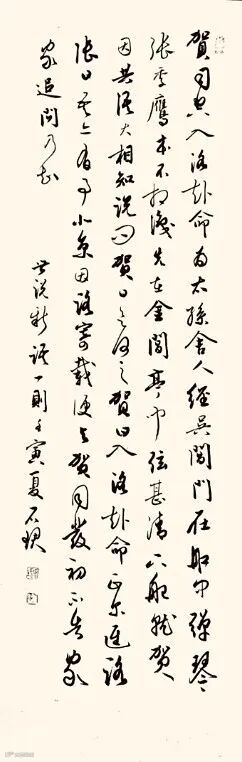 賀司空入洛赴命為太孫舍人經吳閶門在船中彈琴
張季鷹本不相識先在金閶亭中弦甚清下船就賀
因共語大相知說問賀曰之何之賀曰入洛赴命正尔進路
張曰吾亦有事北京因路寄載便與賀同發初不告家
家追問乃知
世說新語一則壬寅夏石